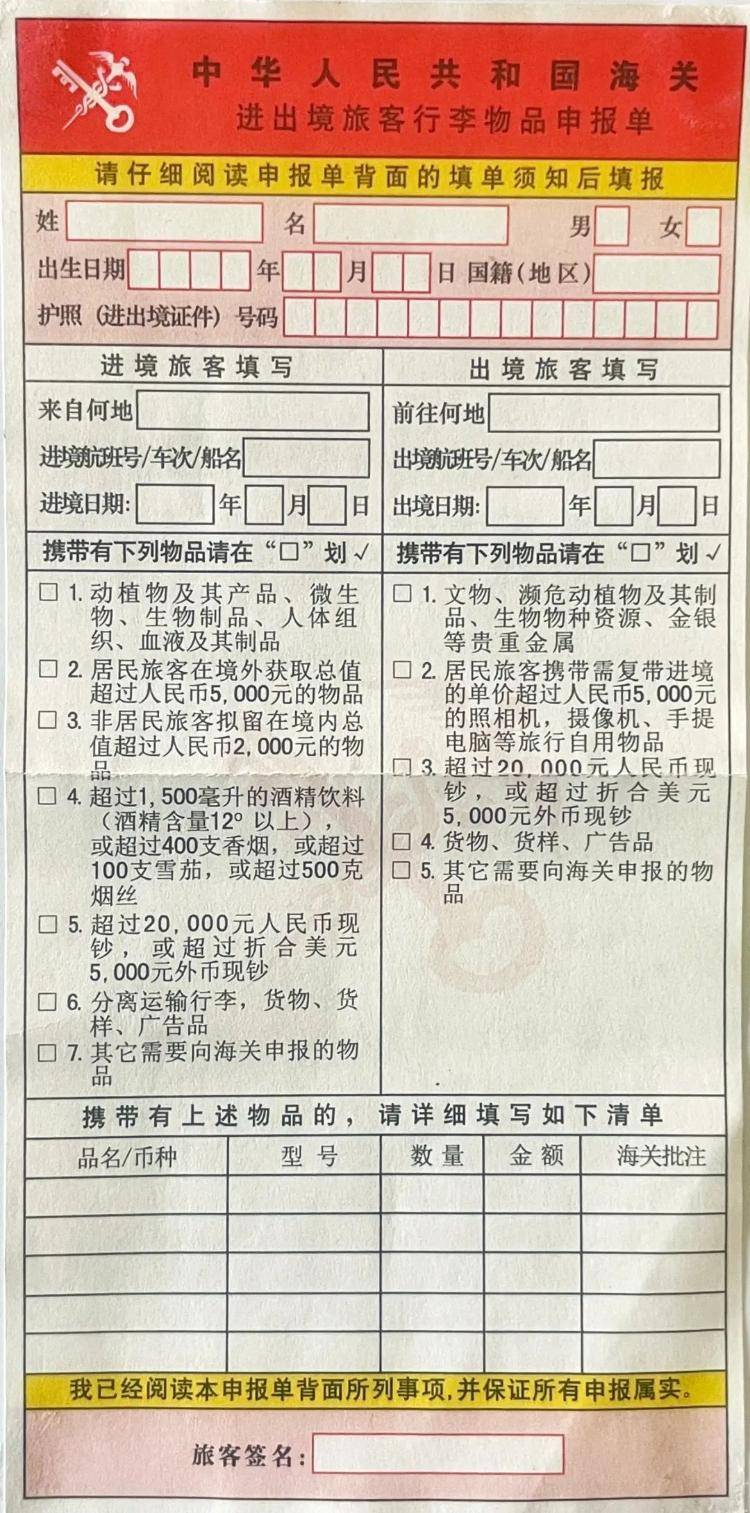 中华人民共和国海关
进出境旅客行李物品申报单
请仔细阅读申报单背面的填单须知后填报
姓 名 男 女
出生日期 年 月 日 国籍(地区)
护照（进出境证件）号码
进境旅客填写
来自何地
进境航班号/车次/船名
进境日期: 年 月 日
携带有下列物品请在“□”划√
□ 1. 动植物及其产品、微生
物、生物制品、人体组
织、血液及其制品
□ 2. 居民旅客在境外获取总值
超过人民币5,000元的物品
□ 3. 非居民旅客拟留在境内总
值超过人民币2,000元的物
品
□ 4. 超过1,500毫升的酒精饮料
（酒精含量12º 以上），
或超过400支香烟，或超过
100支雪茄，或超过500克
烟丝
□ 5. 超过20,000元人民币现
钞，或超过折合美元
5,000元外币现钞
□ 6. 分离运输行李，货物、货
样、广告品
□ 7. 其它需要向海关申报的物
品
出境旅客填写
前往何地
出境航班号/车次/船名
出境日期: 年 月 日
携带有下列物品请在“□”划√
□ 1. 文物、濒危动植物及其制
品、生物物种资源、金银
等贵重金属
□ 2. 居民旅客携带需复带进境
的单价超过人民币5,000元
的照相机，摄像机、手提
电脑等旅行自用物品
□ 3. 超过20,000元人民币现
钞，或超过折合美元
5,000元外币现钞
□ 4. 货物、货样、广告品
□ 5. 其它需要向海关申报的物
品
携带有上述物品的，请详细填写如下清单
品名/币种 型号 数量 金额 海关批注
我已经阅读本申报单背面所列事项,并保证所有申报属实。
旅客签名: